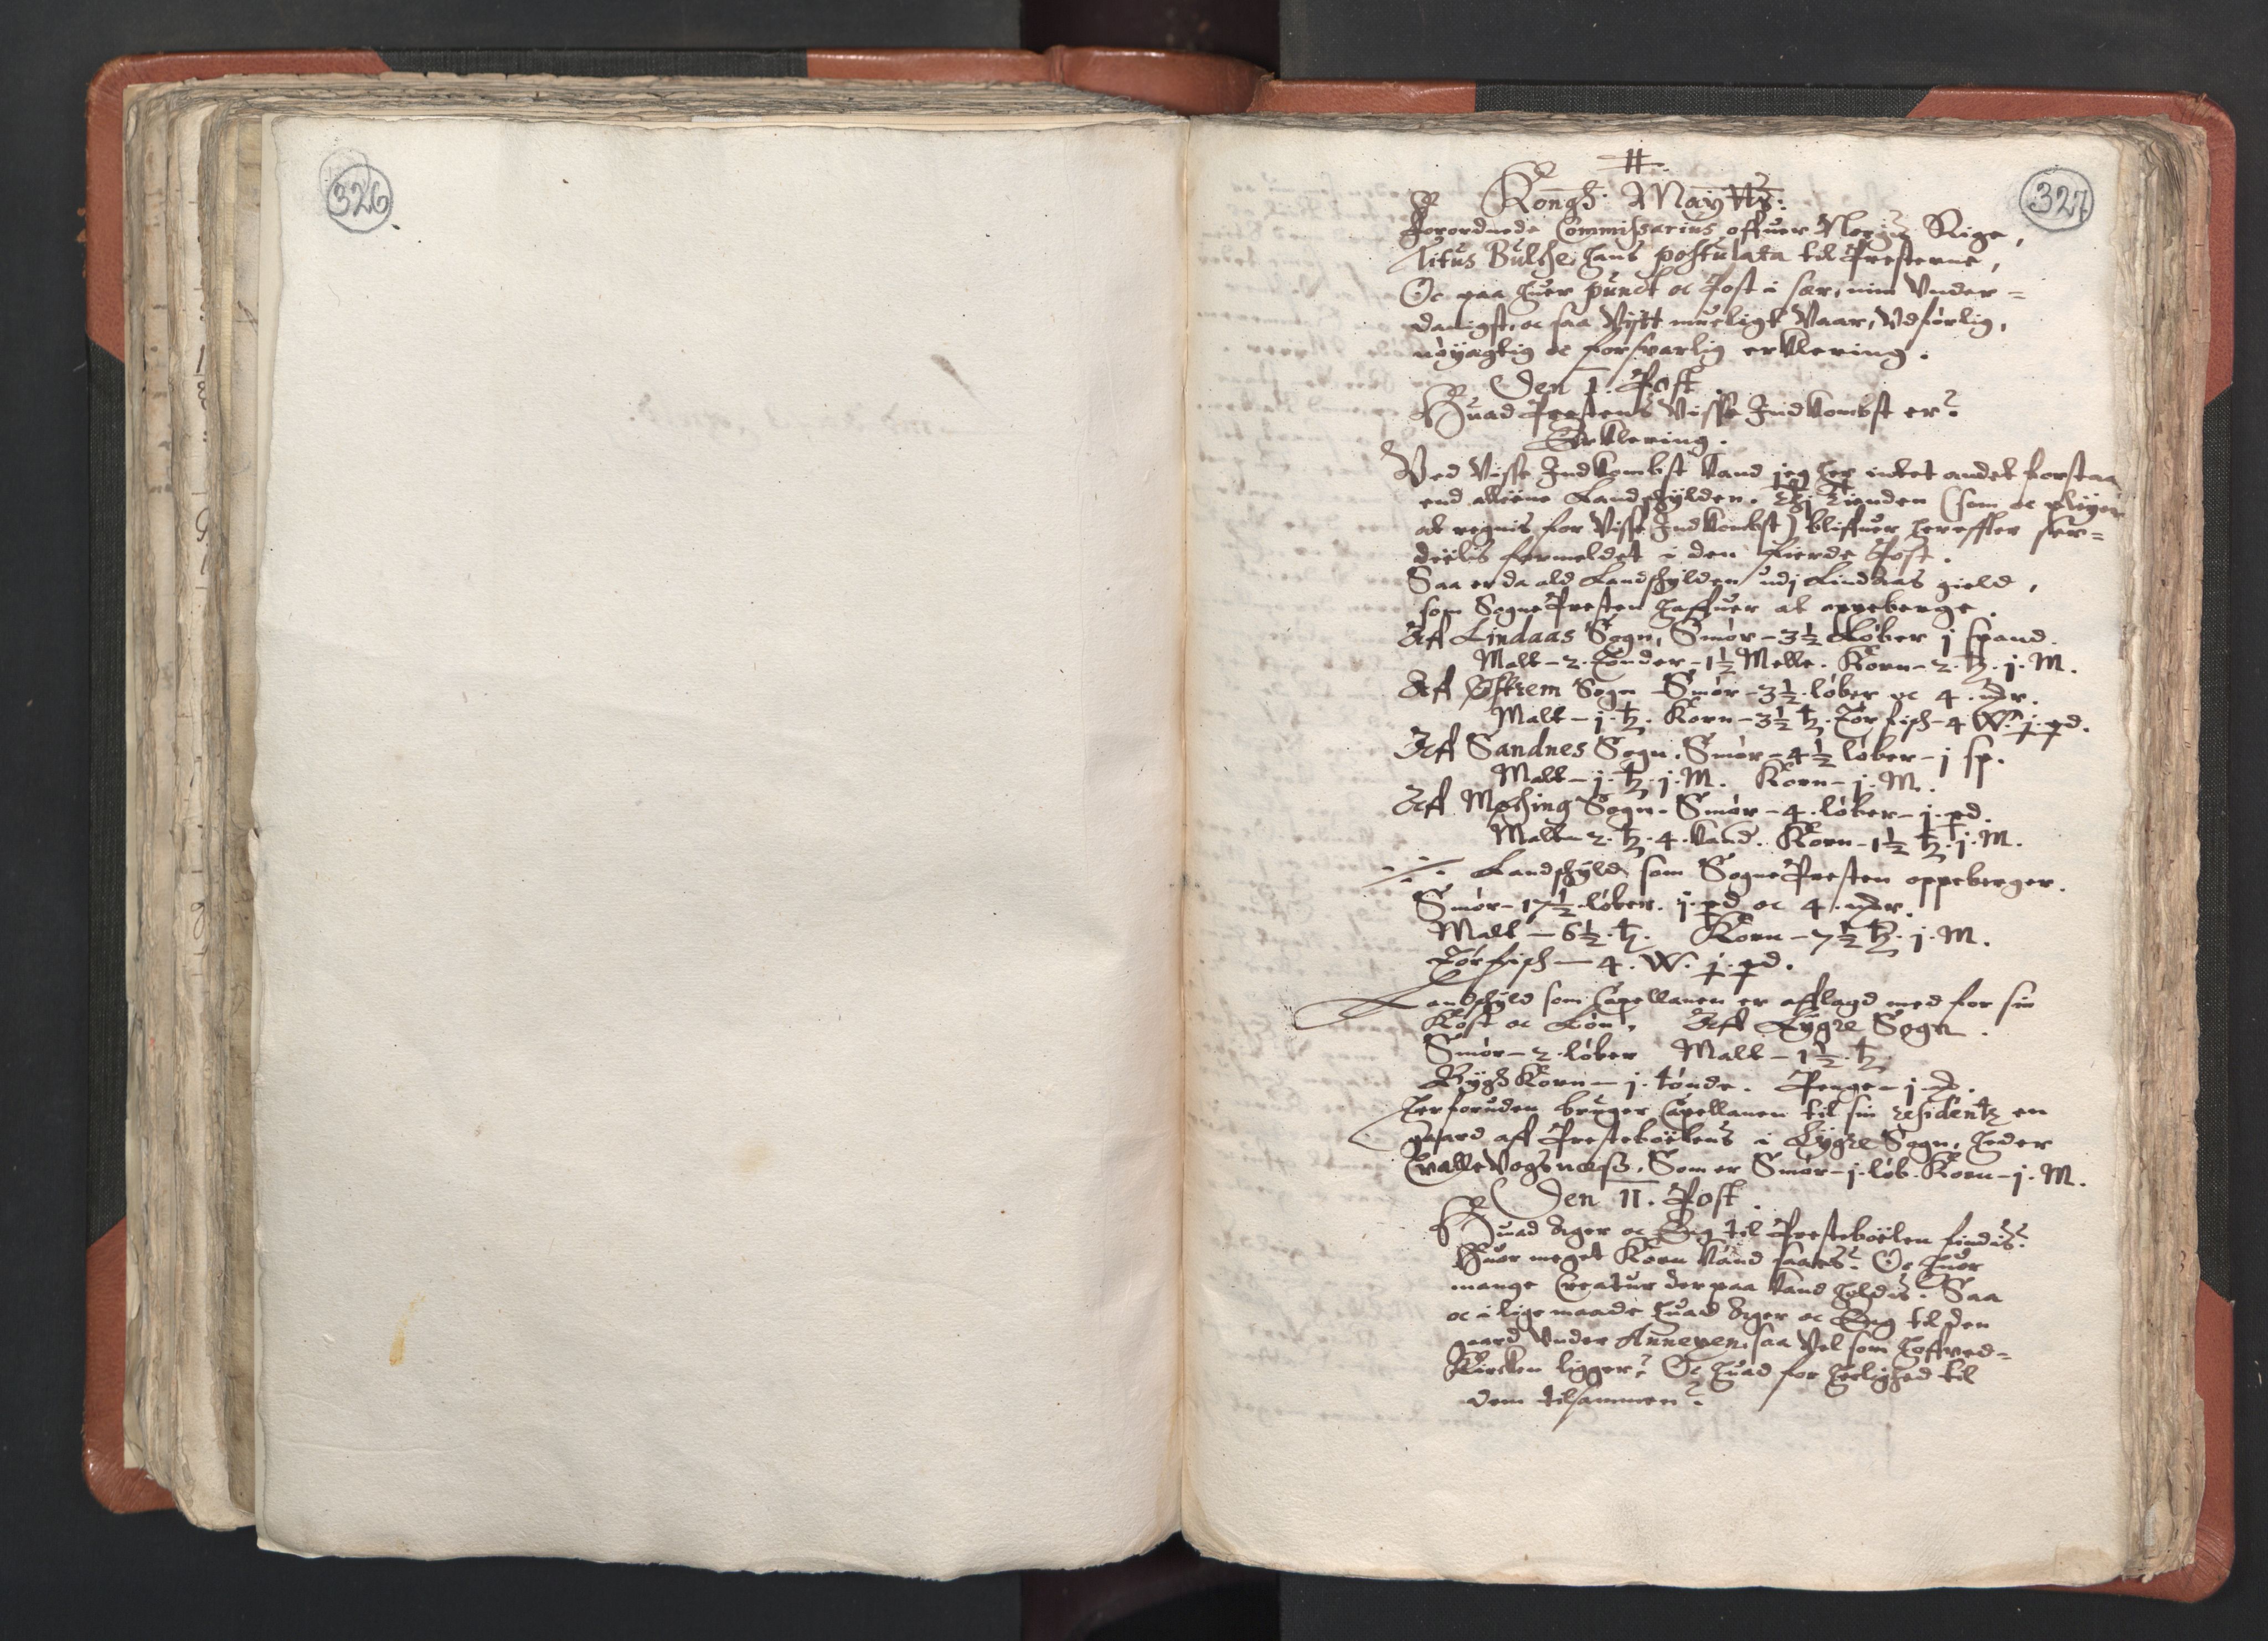 326
327
#.
Kongl: Maytts:
forordnede Commissarius offuer Norgis Rige,
Titus Bulche, hans postulata til Presterne,
Oc paa huer punct oc Post i sær, min Vnder=
danigste, oc saa Vitt mueligt Vaar, Vdførlig,
nøyagtig oc forsvarlig erklering.
Den 1. Post
Huad Prestens Visse Indkombst er?
Erklering.
Ved Visse Indkombst kand jeg her intet andet forstaa
end alleene Landschylden. Thj Tienden (som oc pleyer
at regnis for Visse Indkombst) bliffuer hereffter sær=
deelis formeldet i den fierde Post.
Saa er da ald Landschylden udj Lindaas gield,
som Sogne Presten haffuer at oppeberge.
Aff Lindaas Sogn, Smør - 3½ Løber j spand.
Malt - 2. Tønder - 1½ Melle. Korn - 2. tz. j. M.
Aff Østrem Sogn Smør - 3½. løber oc 4. mr.
Malt - j. tz. Korn - 3½ tz. Tør fisch - 4 W. j. pd.
Aff Sandnes Sogn. Smør - 4½ løber - j sp.
Malt - j. tz. j. M. Korn - j. M.
Aff Møching Sogn. Smør - 4. løber - j. pd.
Malt - 2. tz. 4. kand. Korn - 1½ tz. j. M.
Landschyld som Sogne Presten oppeberger.
Smør - 17½ løber. j. pd oc 4. mr.
Malt - 6½. tz. Korn - 7½ tz. j. M.
Tørfisch - 4. W. j. pd.
Landschyld som Capellanen er afflagd med for sin
Kost oc Løn, Aff Lygre Sogn.
Smør - 2. løber Malt - 1½. tz.
Bygh Korn - j. tønde. Penge - j
Herforuden bruger Capellanen til sin residentz en
gaard aff Presteboelens i Lygre Sogn, heder
Vogsnæss. Som er Smør - j. løb. Korn - j. M.
Den II. Post.
Huad Ager oc Eng til Presteboelen findis?
Huor meget Korn kand saaes? Oc huor
mange Creatur derpaa kand holdis? Saa
oc i lige maade huad Ager oc Eng til den
gaard Vnder Annexen, saa Vel som hoffved=
Kircken ligger? Oc huad for herlighed til
dem tilsammen?